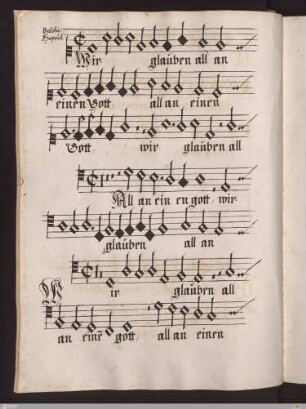 Wir glauben all an
einen Gott all an einen
Gott wir glauben all
All an ein en gott, wir
glauben all an
Wir glauben all
an einē gott, all an einen